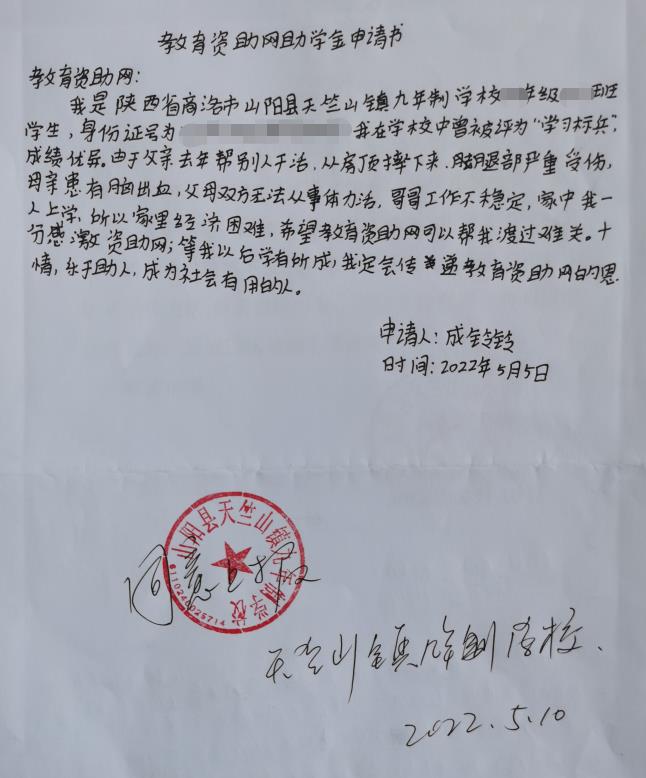 教育资助网助学金申请书
教育资助网:
我是陕西省商洛市山阳县天竺山镇九年制学校 年级 班
学生,身份证号为 我在学校中曾被评为“学习标兵”,
成绩优异。由于父亲去年帮别人干活,从房顶摔下来,脚腿部严重受伤,
母亲患有脑出血,父母双方无法从事体力活,哥哥工作不稳定,家中我一
人上学,所以家里经济困难,希望教育资助网可以帮我渡过难关。十
分感激资助网;等我以后学有所成,我定会传递教育资助网的恩
情,乐于助人,成为社会有用的人。
申请人:成铃铃
时间:2022年5月5日
山阳县天竺山镇九年制学校
6110240025714
同意上报
天竺山镇九年制学校.
2022.5.10